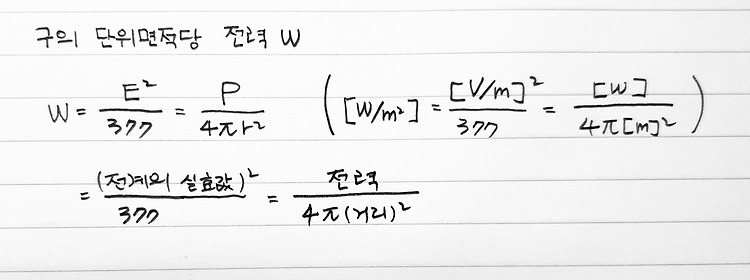 구의 단위면적당 전력 W
W = E²/377 = P/4πr² ([W/m²] = [V/m]²/377 = [W]/4π[m]²)
= (전계의 실효값)²/377 = 전력/4π(거리)²